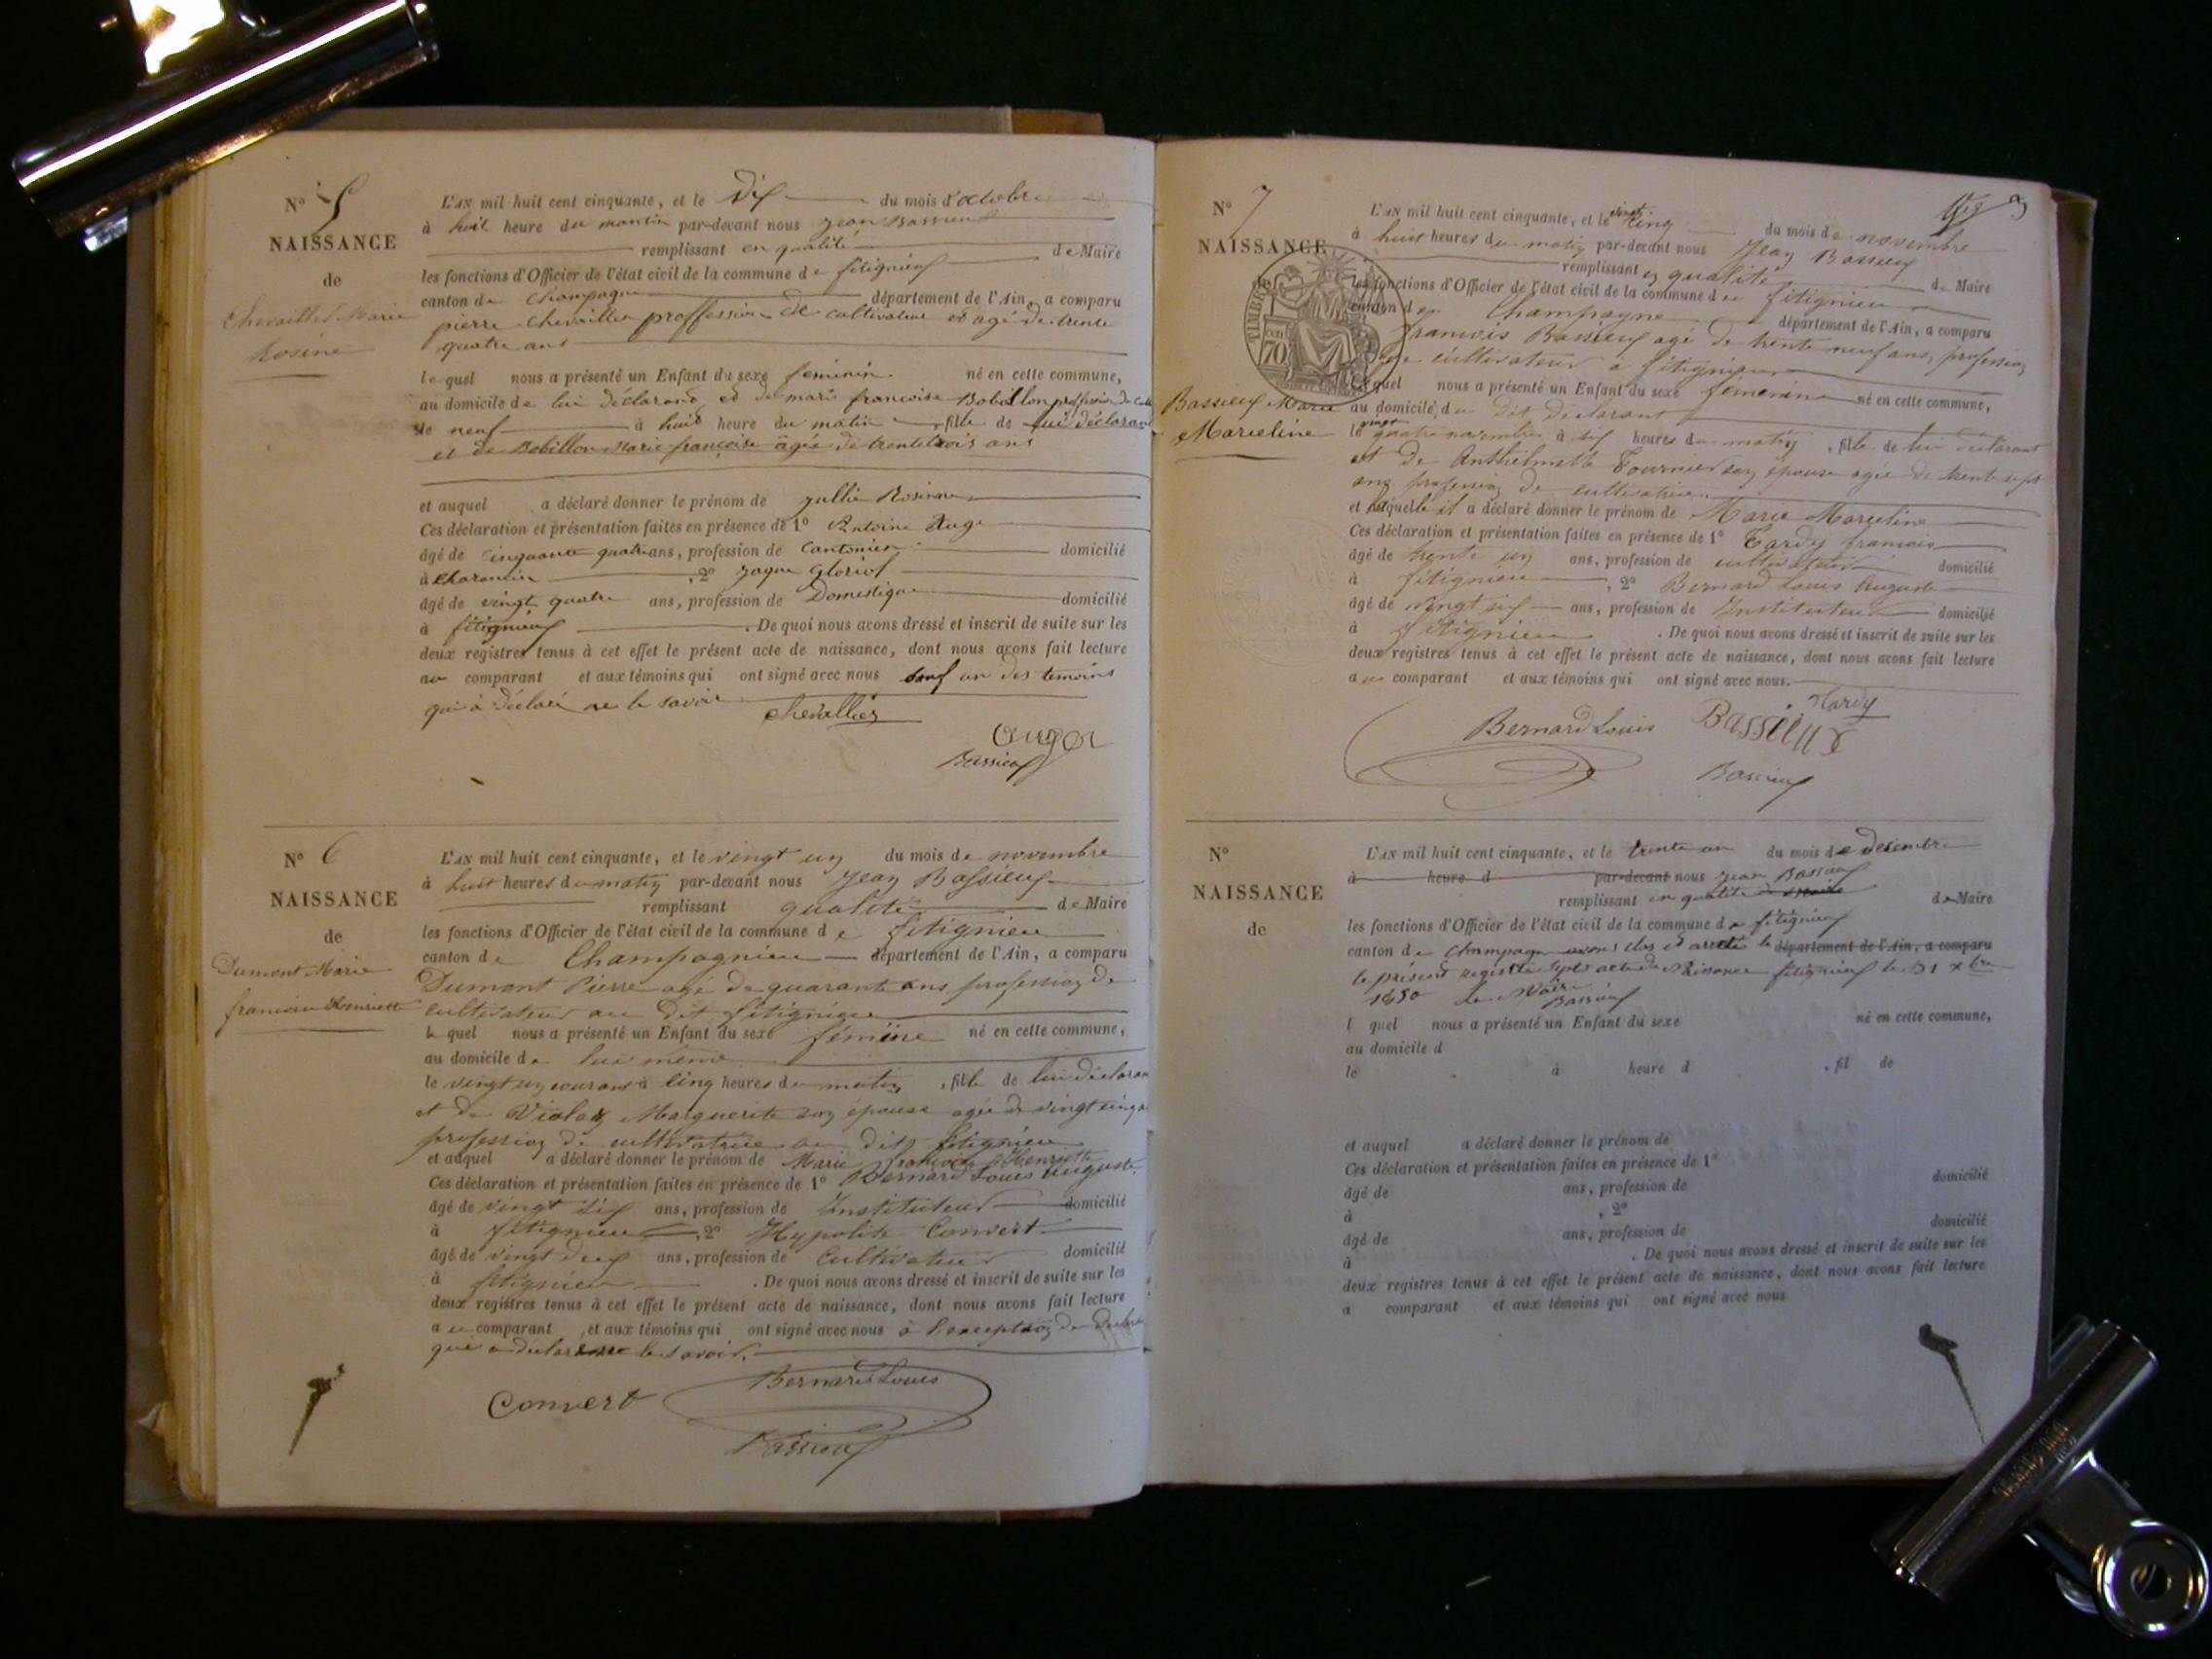 N° 5
NAISSANCE
de
Chevaillet Marie
Rosine
L'AN mil huit cent cinquante, et le dix du mois d'octobre
à huit heure du mantin par-devant nous jean Bassieux
remplissant en qualité de Maire
les fonctions d'Officier de l'état civil de la commune de fitignieux
canton de Champagne département de l'Ain, a comparu
pierre Chevaillet proffession de cultivateur et agé de trente
quatre ans
le quel nous a présenté un Enfant du sexe feminin né en cette commune,
au domicile de lui declarand et de marie francoise Bobillon proffession de
le neuf à huit heure du matin, fille de lui déclarant
et de Bobillon Marie françoise âgée de trente trois ans
et auquel a déclaré donner le prénom de jullie Rosinne
Ces déclaration et présentation faites en présence de 1° Antoine Auge
âgé de cinquante quatre ans, profession de Cantonier domicilié
à Charancin, 2° jaque Gloriot
âgé de vingt quatre ans, profession de Domestique domicilié
à fitignieux. De quoi nous avons dressé et inscrit de suite sur les
deux registres tenus à cet effet le présent acte de naissance, dont nous avons fait lecture
au comparant et aux témoins qui ont signé avec nous sauf un des temoins
qui a déclaré ne le savoir
chevallier
auger
Bassieux
N° 6
NAISSANCE
de
Dumont Marie
francoise Henriette
L'AN mil huit cent cinquante, et le vingt un du mois de novembre
à huit heures du matin par-devant nous Jean Bassieux
remplissant qualité de Maire
les fonctions d'Officier de l'état civil de la commune de fitignieu
canton de Champagnieu département de l'Ain, a comparu
Dumont Pierre agé de quarante ans, profession de
cultivateur au dit fitignieu
le quel nous a présenté un Enfant du sexe fémïne né en cette commune,
au domicile de lui même
le vingt un courant à cinq heures du matin, fille de lui déclarant
et de Violet Marguerite son épouse agée de vingt cinq
profession de cultivatrice au dit fitignieu
et auquel a déclaré donner le prénom de Marie francoise Henriette
Ces déclaration et présentation faites en présence de 1° Bernard Louis Auguste
âgé de vingt six ans, profession de Instituteur domicilié
à fitignieu, 2° Hypolite Convert
âgé de vingt deux ans, profession de Cultivateur domicilié
à fitignieu. De quoi nous avons dressé et inscrit de suite sur les
deux registres tenus à cet effet le présent acte de naissance, dont nous avons fait lecture
au comparant, et aux témoins qui ont signé avec nous à l'exception du
qui a déclaré ne le savoir.
Convert
Bernard Louis
Bassieux
3
N° 7
NAISSANCE
de
TIMBRE
CEN
70
Bassieux Marie
Marceline
L'AN mil huit cent cinquante, et le vingt cinq du mois de novembre
à huit heures du matin par-devant nous Jean Bassieux
remplissant en qualité de Maire
les fonctions d'Officier de l'état civil de la commune de fitignieu
canton de Champagne département de l'Ain, a comparu
francois Bassieux agé de trente neuf ans, profession
de cultivateur à fitignieu
Le quel nous a présenté un Enfant du sexe féminine né en cette commune,
au domicile du dit déclarant
le vingt quatre novembre à six heures du matin, fille de lui déclarant
et de Anthelmette Tournier son épouse agée de trente sept
ans profession de cultivatrice
et à laquelle il a déclaré donner le prénom de Marie Marceline
Ces déclaration et présentation faites en présence de 1° Tardy francois
âgé de trente un ans, profession de cultivateur domicilié
à fitignieu, 2° Bernard Louis Auguste
âgé de vingt six ans, profession de Instituteur domicilié
à fitignieu. De quoi nous avons dressé et inscrit de suite sur les
deux registres tenus à cet effet le présent acte de naissance, dont nous avons fait lecture
au comparant et aux témoins qui ont signé avec nous.
Tardy
Bernard Louis Bassieux
Bassieux
N°
NAISSANCE
de
L'AN mil huit cent cinquante, et le trente un du mois de decembre
à heure d par-devant nous jean Bassieux
remplissant en qualité de Maire de Maire
les fonctions d'Officier de l'état civil de la commune de fitignieux
canton de Champagne avons clos et areté le département de l'Ain, a comparu
le présent registre sept acte de Naisance fitignieux le 31 Xbre
1850 Le Maire
Bassieux
l quel nous a présenté un Enfant du sexe né en cette commune,
au domicile d
le à heure d, fil de
et auquel a déclaré donner le prénom de
Ces déclaration et présentation faites en présence de 1°
âgé de ans, profession de domicilié
à, 2°
âgé de ans, profession de domicilié
à. De quoi nous avons dressé et inscrit de suite sur les
deux registres tenus à cet effet le présent acte de naissance, dont nous avons fait lecture
a comparant et aux témoins qui ont signé avec nous